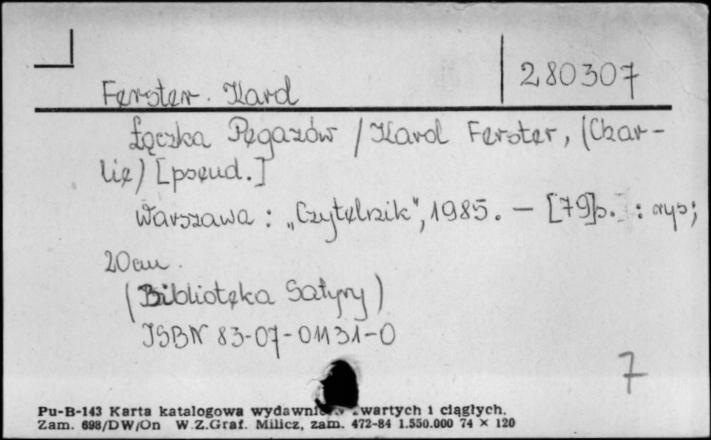 280307
Ferster Karol
Łączka Pegazów / Karol Ferster, (Char-
lie) [pseud.]
Warszawa : „Czytelnik", 1985. — [79]s. : rys;
20cm.
(Biblioteka Satyry)
ISBN 83-07-01131-0
7
Pu-B-143 Karta katalogowa wydawnictw zwartych i ciągłych.
Zam. 698/DW/On W.Z.Graf. Milicz, zam. 472-84 1.550.000 74 × 120